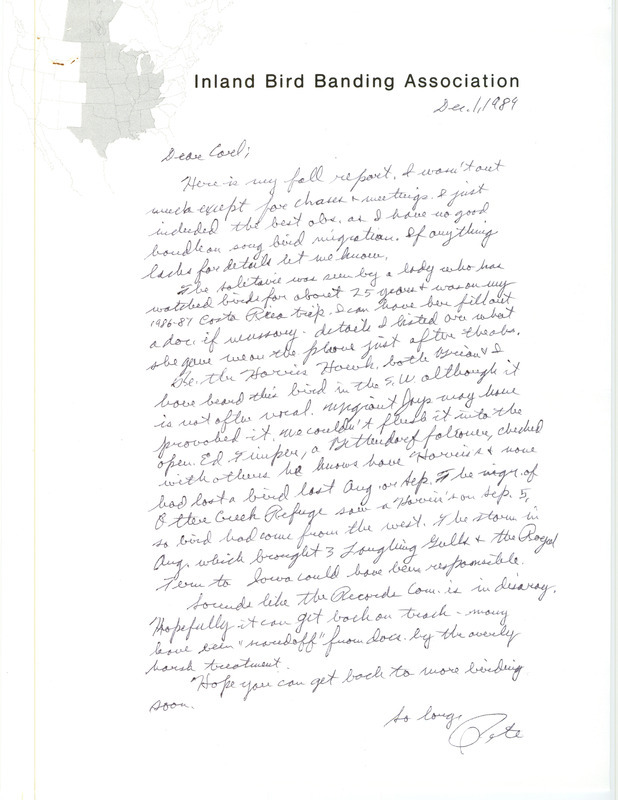 Inland Bird Banding Association
Dec. 1, 1989
Dear Carl;
Here is my fall report. I wasn't out
much except for chases & meetings. I just
included the best obs. as I have no good
handle on song bird migration. If anything
lacks for details let me know.
The solitaire was seen by a lady who has
watched birds for about 25 years & was on my
1986-87 Costa Rica trip. I can have her fill out
a doc. if necessary. details I listed are what
she gave me on the phone just after the obs.
Re. the Harris Hawk, both Brian & I
have heard this bird in the S.W. although it
is not often vocal. Migrant Jays may have
provoked it. We couldn't flush it into the
open. Ed, a Bettendorf falconer, checked
with others he knows have Harris's & none
had lost a bird last Aug. or Sep. The mgr. of
Otter Creek Refuge saw a Harris's on Sep. 5,
so bird had come from the west. The storm in
Aug. which brought 3 Laughing Gulls & the Royal
Tern to Iowa could have been responsible.
Sounds like the Records Com. is in disaray.
Hopefully it can get back on track - many
have been "scared off" from docs. by the overly
harsh treatment.
Hope you can get back to more birding
soon.
So long,
Pete